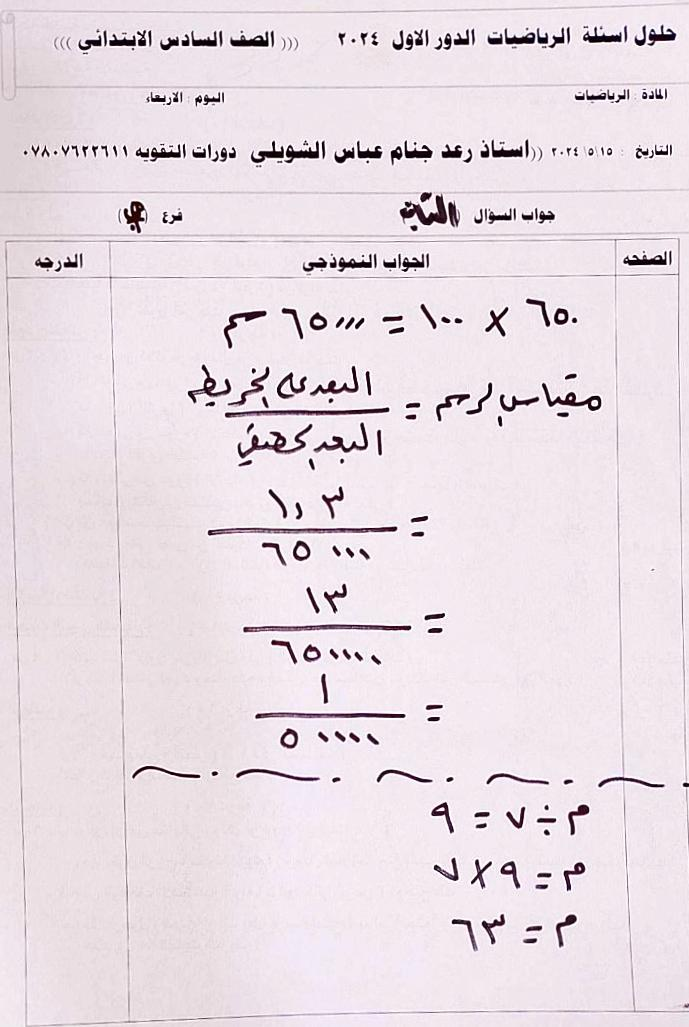 حلول اسئلة الرياضيات الدور الاول ٢٠٢٤ ((( الصف السادس الابتدائي )))
المادة : الرياضيات اليوم : الاربعاء
التاريخ : ٢٠٢٤/٥/١٥ ((استاذ رعد جنام عباس الشويلي دورات التقويه ٠٧٨٠٧٦٢٢٦١١
جواب السؤال ( ) فرع ( )
الصفحه الجواب النموذجي الدرجه
٦٥٠ × ١٠٠ = ٦٥٠٠٠ سم
مقياس الرسم = البعد على الخريطه
البعد الحقيقي
= ١,٣
٦٥٠٠٠
= ١٣
٦٥٠٠٠٠
= ١
٥٠٠٠٠
م ÷ ٧ = ٩
م = ٩ × ٧
م = ٦٣